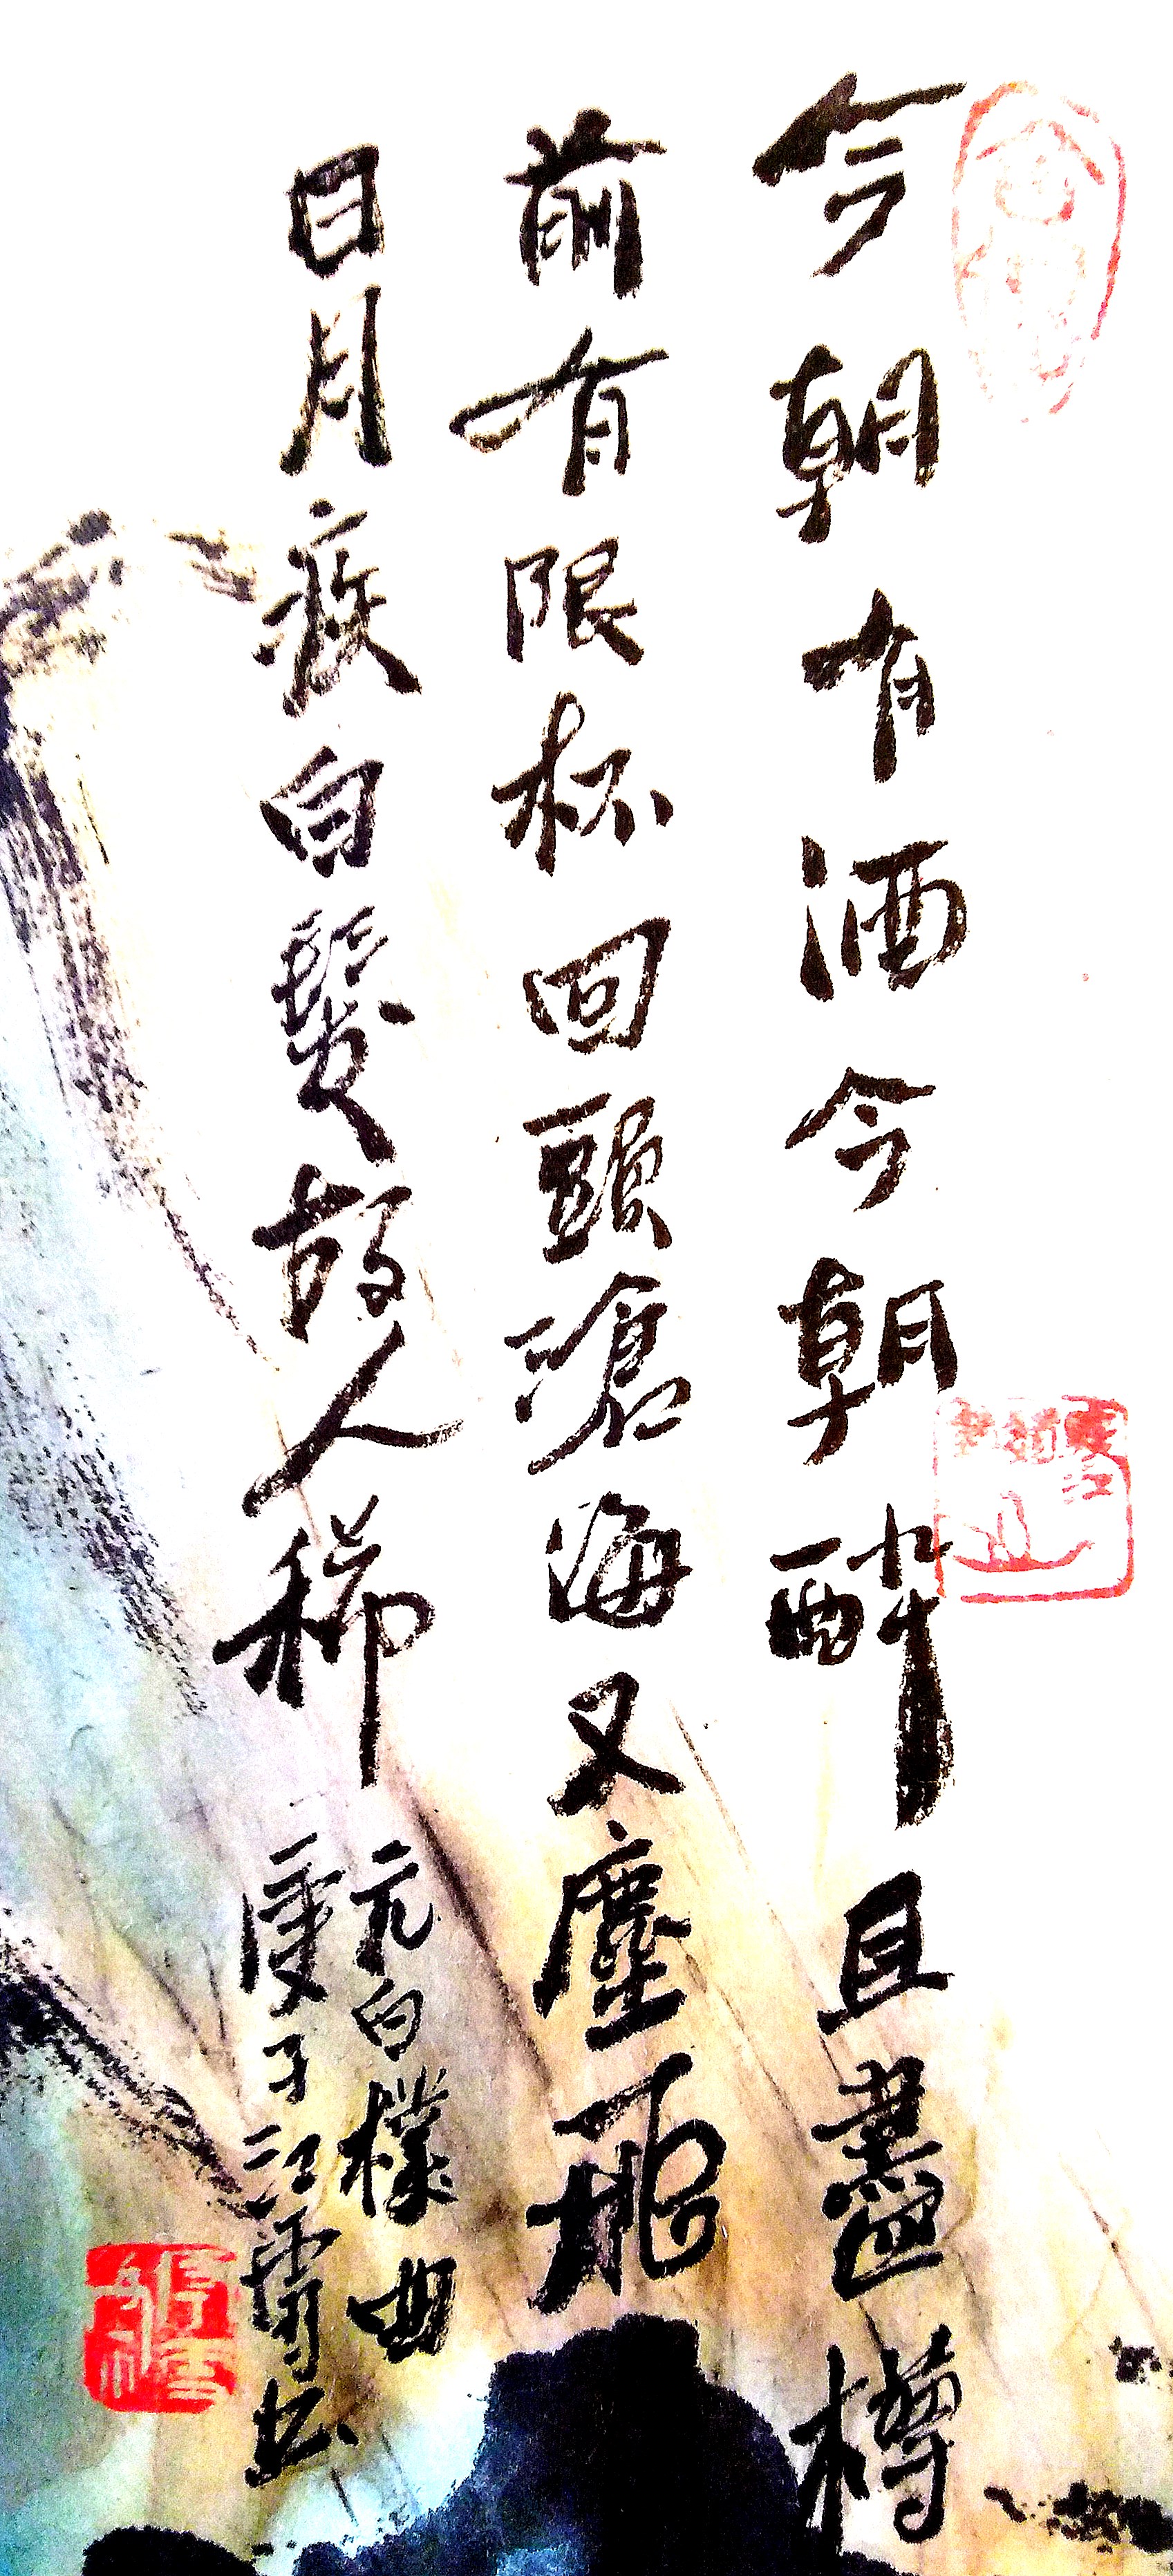 今朝有酒今朝醉且盡樽
前有限杯回頭滄海又塵飛
日月疾白髮故人稀
元白樸曲